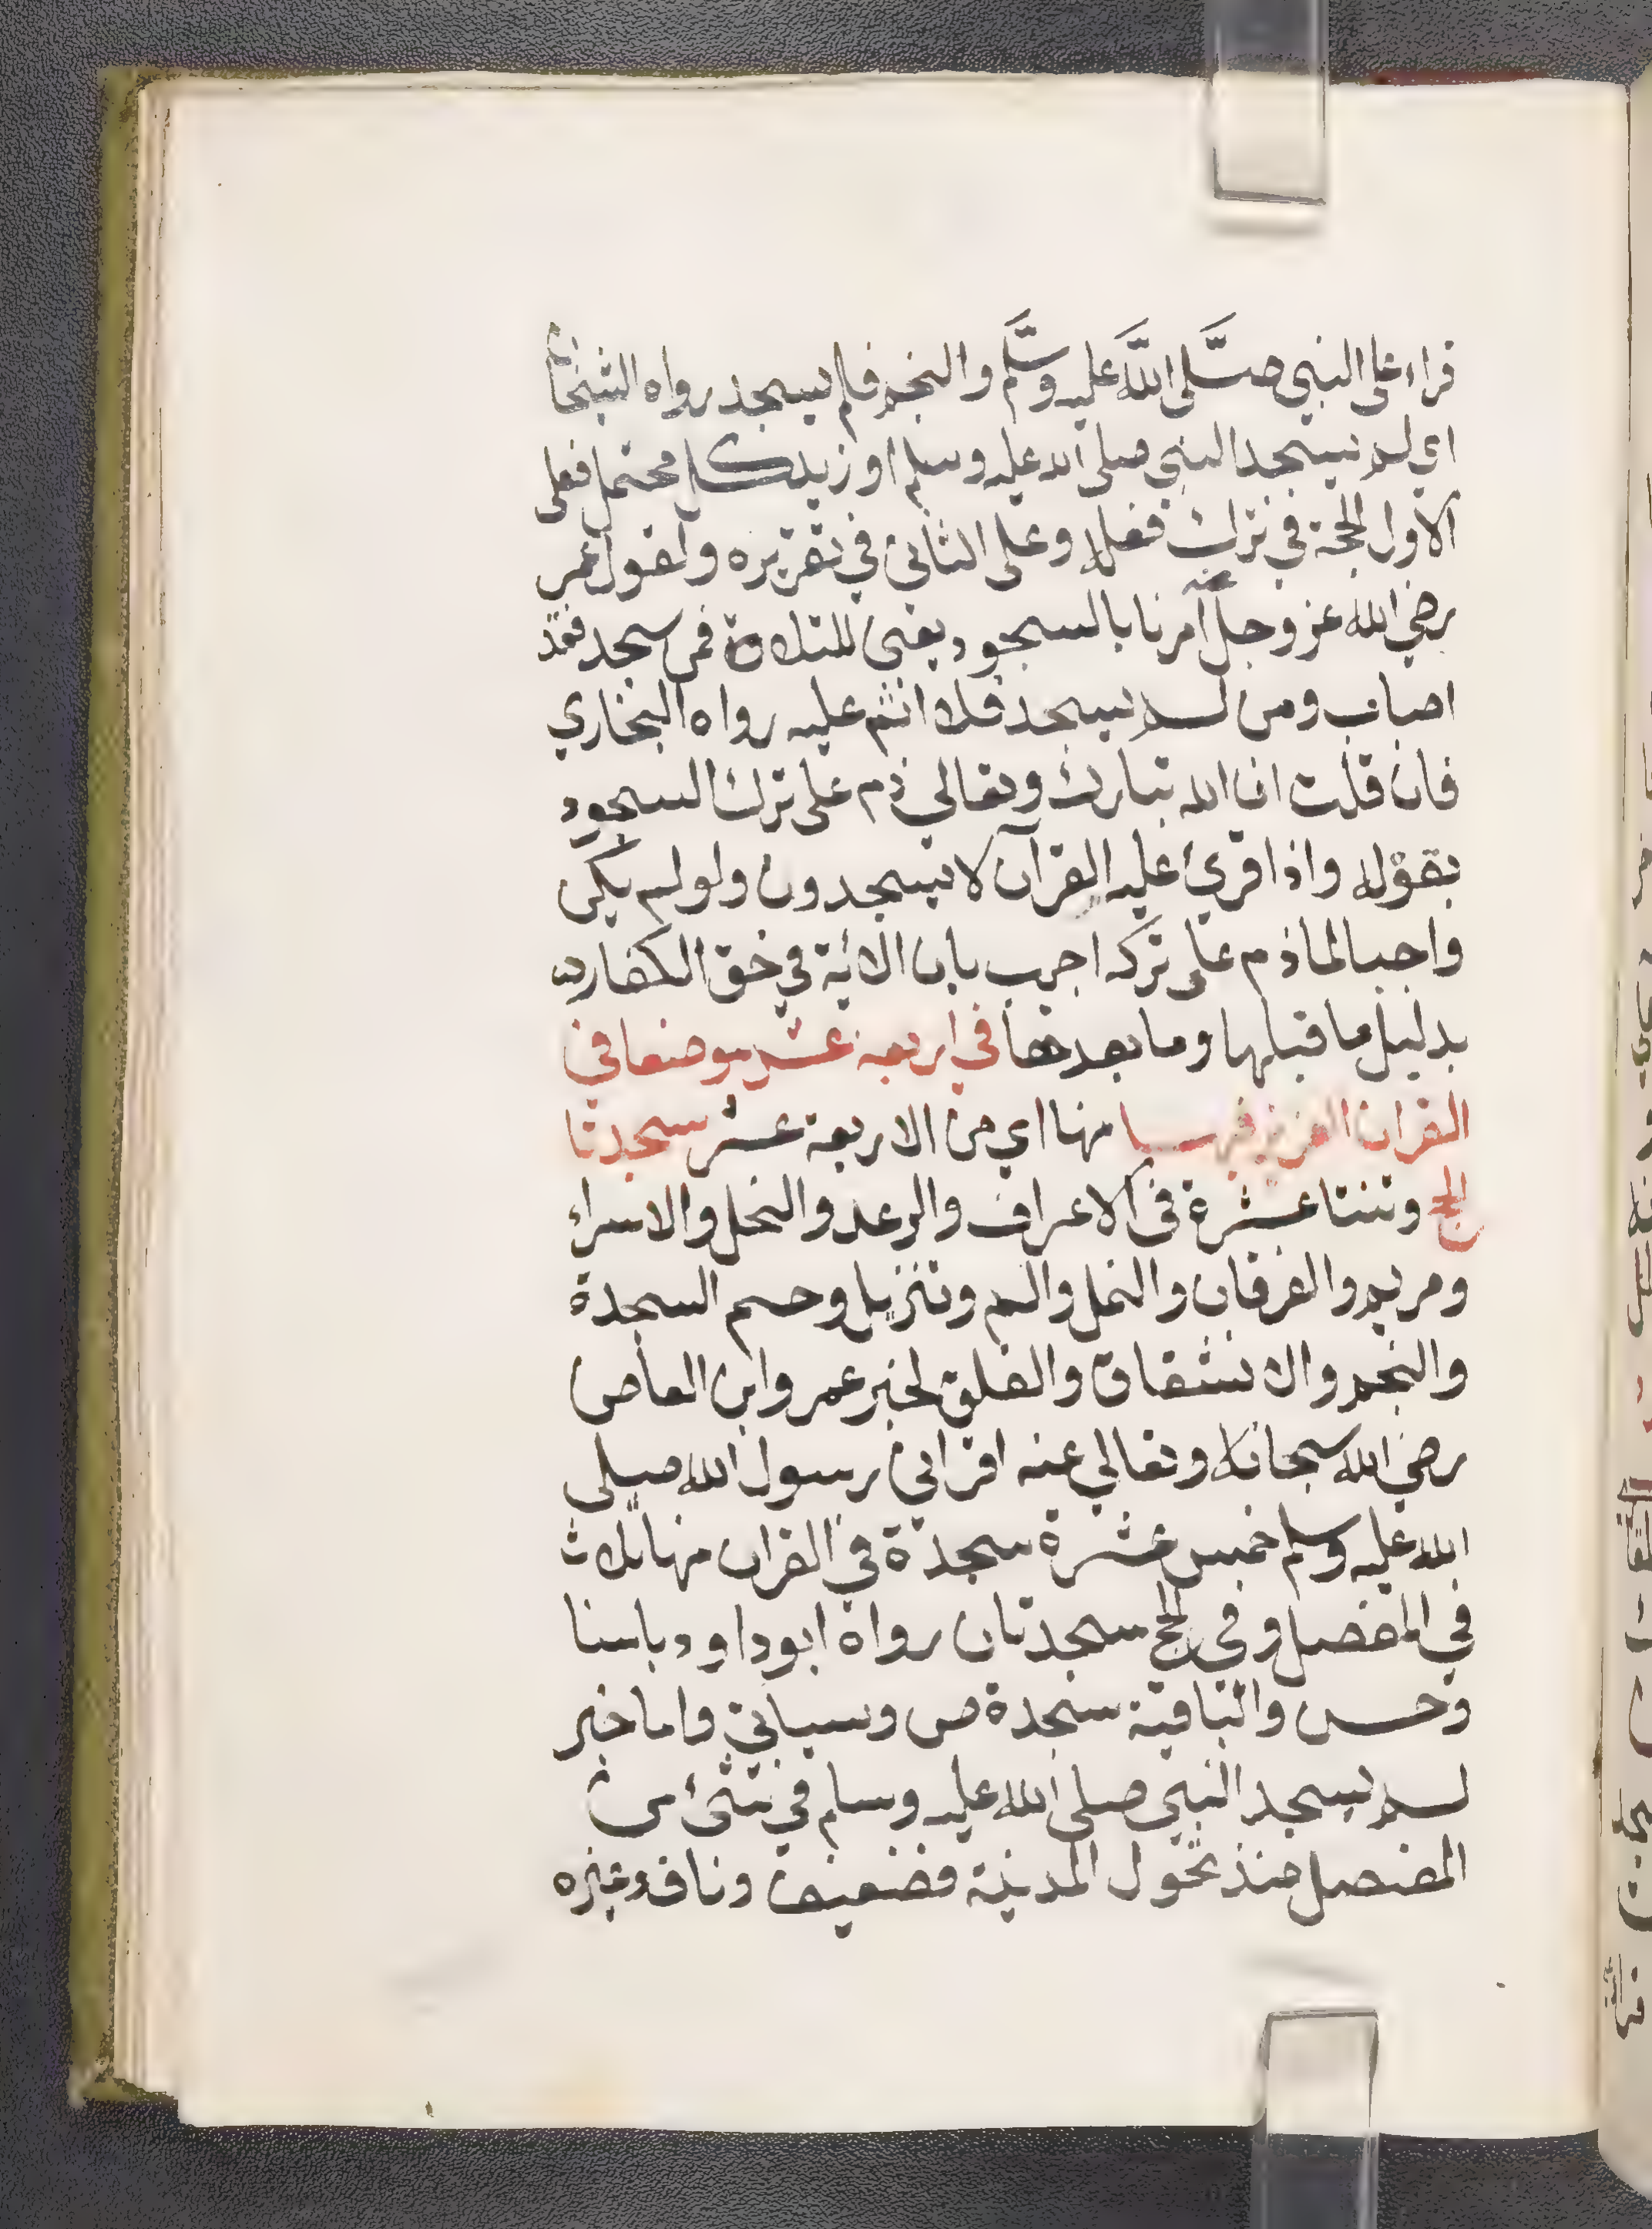 قراء على النبي صلى الله عليه وسلم والنجم فلم يسجد رواه الشيخان
اي لم يسجد النبي صلى الله عليه وسلم او زيد كل محتمل فعلى
الاول الحجة في ترك فعله وعلى الثاني في تقريره ولقول عمر
رضي الله عز وجل عنه امرنا بالسجود يعني للتلاوة فمن سجد فقد
اصاب ومن لم يسجد فلا اثم عليه رواه البخاري
فان قلت ان الله تبارك وتعالي ذم على ترك السجود
بقوله واذا قرئ عليه القرآن لا يسجدون ولو لم يكن
واجبا لما ذم على تركه اجيب بان الاية في حق الكفار
بدليل ما قبلها وما بعدها في اربعة عشر موضعا في
القران العزيز فهــا منها اي من الاربعة عشر سجدتا
الحج وثنتا عشرة في الاعراف والرعد والنحل والاسراء
ومريم والفرقان والنمل والم وتنزيل وحم السجدة
والنجم والانشقاق والفلق لخبر عمر وابن العاص
رضي الله سبحانه وتعالي عنه اقراني رسول الله صلى
الله عليه وسلم خمس عشرة سجدة في القران منها ثلاث
في المفصل وفي الحج سجدتان رواه ابوداود باسنا
د حسن والباقية سجدة ص وسياتي واما خبر
لم يسجد النبي صلى الله عليه وسلم في شئ من
المفصل منذ تحول المدينة فضعيف وناف وغيره